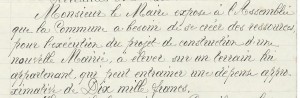 Monsieur le Maire expose à l'Assemblée
que la Commune a besoin de se créer des ressources
pour l'exécution du projet de construction d'une
nouvelle Mairie, à élever sur un terrain lui
appartenant, qui peut entrainer une dépense appro
ximative de Dix mille francs.